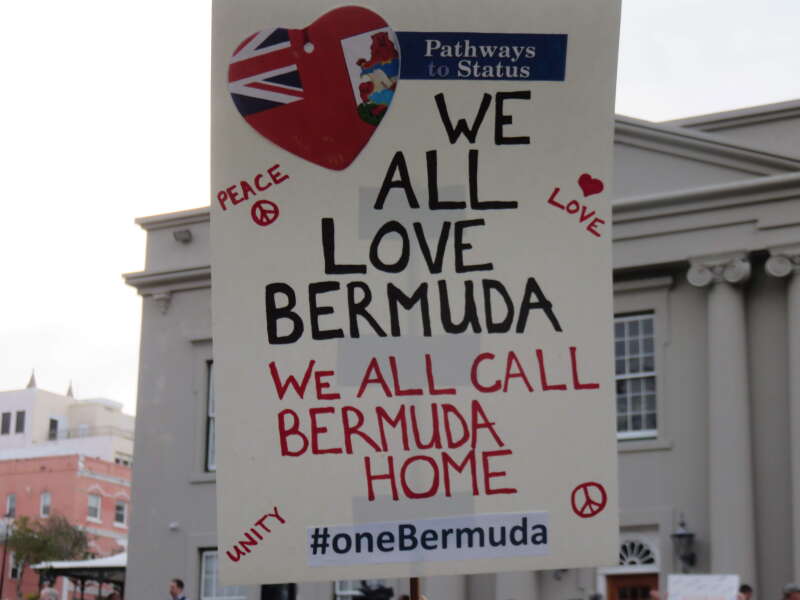 Pathways
to Status
WE
ALL
LOVE
BERMUDA
PEACE
LOVE
WE ALL CALL
BERMUDA
HOME
UNITY
#oneBermuda